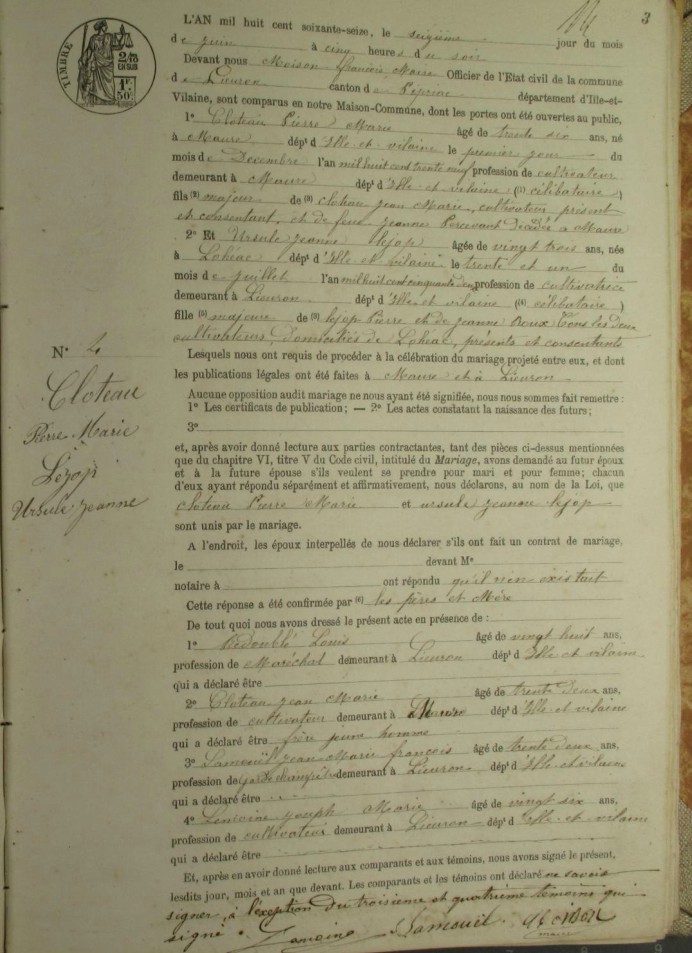 14
3
TIMBRE
2/10 EN SUS
1F. 50c.
L'AN mil huit cent soixante-seize, le seizième jour du mois
de juin à cinq heures du soir
Devant nous Moison françois, Maire Officier de l'Etat civil de la commune
de Lieuron canton de Pipriac département d'Ille-et-
Vilaine, sont comparus en notre Maison-Commune, dont les portes ont été ouvertes au public,
1° Cloteau Pierre Marie âgé de trente six ans, né
à Maure dépt d'Ille-et-vilaine le premier jour du
mois de Decembre l'an mil huit cent trente neuf profession de cultivateur
demeurant à Maure dépt d'Ille et vilaine (1) (célibataire)
fils (2) majeur de (3) cloteau jean Marie, cultivateur présent
et consentant, et de feue jeanne Percevant Décédée à Maure
2° Et Ursule jeanne lejop âgée de vingt trois ans, née
à Lohéac dépt d'Ille-et-vilaine le trente et un du
mois de juillet l'an mil huit cent cinquante deux profession de cultivatrice
demeurant à Lieuron dépt d'Ille et vilaine (4) (célibataire)
fille (5) majeure de (3) lejop Pierre et de jeanne Roux tous les deux
cultivateurs, Domiciliés de Lohéac, présents et consentants
N° 4
Lesquels nous ont requis de procéder à la célébration du mariage projeté entre eux, et dont
les publications légales ont été faites à Maure et à Lieuron
Cloteau
Pierre Marie
Lejop
Ursule jeanne
Aucune opposition audit mariage ne nous ayant été signifiée, nous nous sommes fait remettre :
1° Les certificats de publication ; — 2° Les actes constatant la naissance des futurs ;
3°
et, après avoir donné lecture aux parties contractantes, tant des pièces ci-dessus mentionnées
que du chapitre VI, titre V du Code civil, intitulé du Mariage, avons demandé au futur époux
et à la future épouse s'ils veulent se prendre pour mari et pour femme ; chacun
d'eux ayant répondu séparément et affirmativement, nous déclarons, au nom de la Loi, que
cloteau Pierre Marie et ursule jeanne lejop
sont unis par le mariage.
A l'endroit, les époux interpellés de nous déclarer s'ils ont fait un contrat de mariage,
le devant Me
notaire à ont répondu qu'il n'en existait
Cette réponse a été confirmée par (6) les pères et Mère
De tout quoi nous avons dressé le présent acte en présence de :
1° Redoublé Louis âgé de vingt huit ans,
profession de Maréchal demeurant à Lieuron dépt d'Ille et vilaine
qui a déclaré être
2° Cloteau jean Marie âgé de trente deux ans,
profession de cultivateur demeurant à Maure dépt d'Ille-et-vilaine
qui a déclaré être frère jeune homme
3° Lamouël jean Marie françois âgé de trente deux ans,
profession de garde champêtre demeurant à Lieuron dépt d'Ille et vilaine
qui a déclaré être
4° Lemoine joseph Marie âgé de vingt six ans,
profession de cultivateur demeurant à Lieuron dépt d'Ille-et-vilaine
qui a déclaré être
Et, après en avoir donné lecture aux comparants et aux témoins, nous avons signé le présent,
lesdits jour, mois et an que devant. Les comparants et les témoins ont déclaré ne savoir
signer, à l'exeption du troisieme et quatrième témoins qui
signé. Lemoine Lamouël Moison
maire